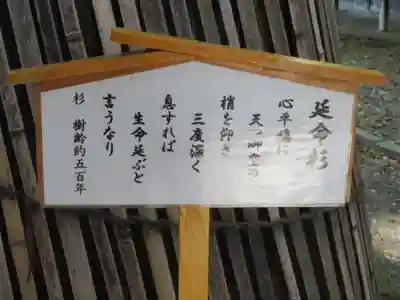 延命杉
心平穏に
天を仰ぎの
梢を仰ぎ
三度深く
息すれば
生命延ぶと
言うなり
杉 樹齢約五百年